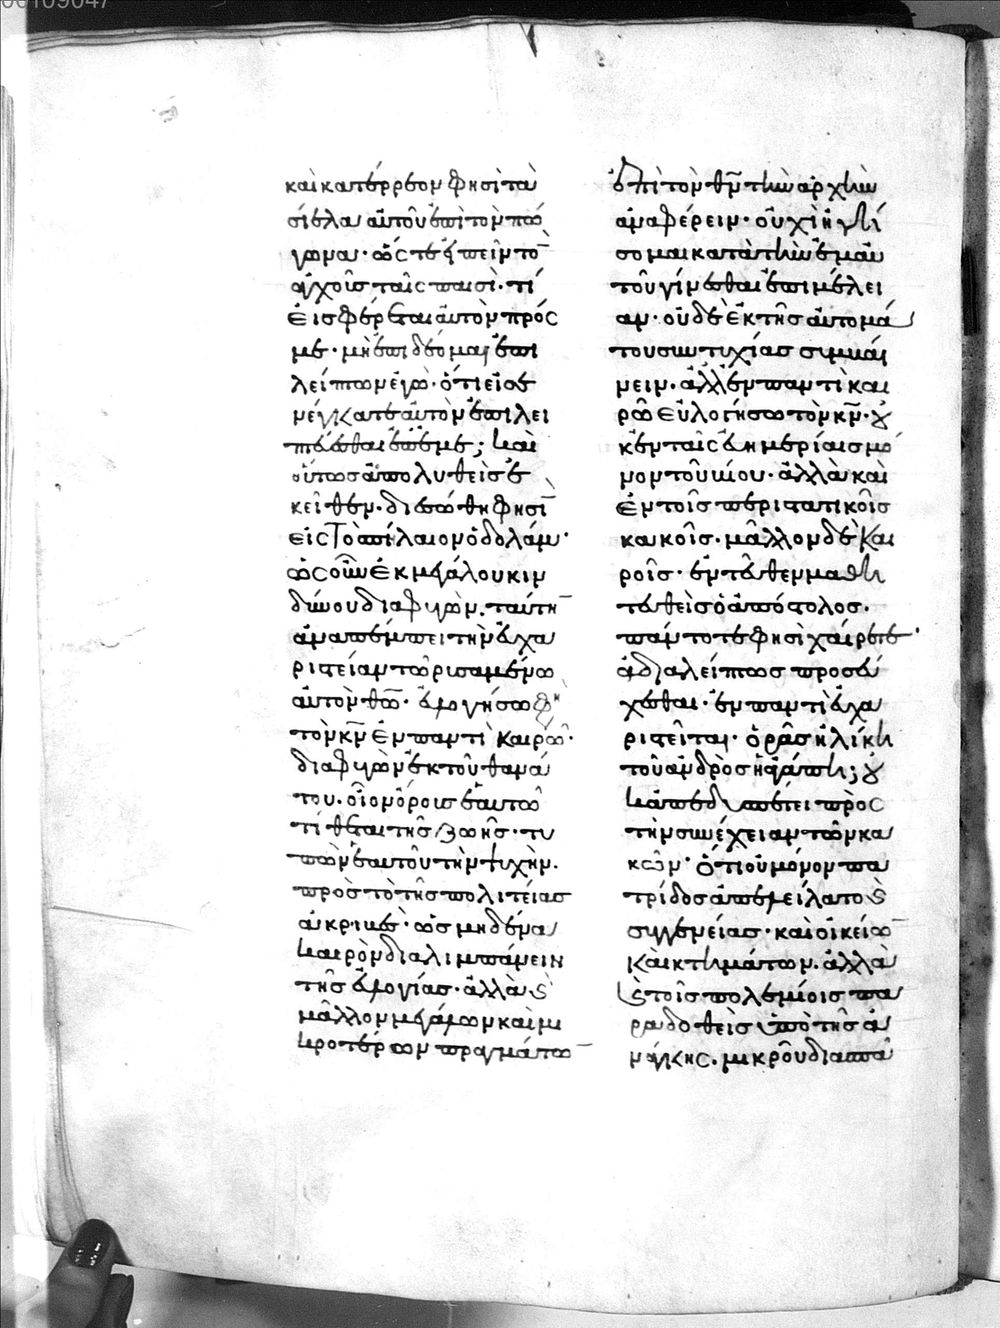 καὶ κατέρρεον φησὶ τὰ
σίελα αὐτοῦ ἐπὶ τὸν πώ
γωνα· ὥστε εἰπεῖν τὸ
ἀγχοῦς τοῖς παισὶ· τί
εἰσφέρεται αὐτὸν πρός
με· μὴ ἐπιδέομαι ἐπι
λείπτων ἐγὼ· ὅτι εἰσε
νέγκατε αὐτὸν ἐπιλει
πτεῦσθαι ἐπ' ἐμέ; καὶ
οὕτως ἀπολυθεὶς ἐ
κεῖθεν. διεσώθη φησὶ
εἰς τὸ σπήλαιον ὀδολάμ·
ὡς οὖν ἐκ μεγάλου κιν
δύνου διαφυγὼν. ταύτην
ἀναπέμπει τὴν εὐχα
ριστείαν τῶ ρυσαμένω
αὐτὸν θῶ· εὐλογήσω φη
τὸν κν ἐν παντὶ καιρῶ·
διαφυγὼν ἐκ τοῦ θανά
του. οἱονὸρους ἑαυτῶ
τίθεται τῆς ζωῆς· τυ
πῶν ἑαυτοῦ τὴν ψυχὴν.
πρὸς τὸ τῆς πολιτείας
ἀκριβὲς· ὡς μηδένα
καιρὸν διαλιμπάνειν
τῆς εὐλογίας· ἀλλὰ καὶ
μᾶλλον μεγάλων καὶ μι
κροτέρων πραγμάτων
ἐπὶ τὸν θν τὴν ἀρχὴν
ἀναφέρειν· οὐχὶ ἡγή
σομαι κατὰ τὴν ἐμὴν
τοῦ γίνεσθαι ἐπιμέλει
αν· οὐδὲ ἐκ τῆς αὐτομά
του συντυχίας συμβαί
νειν. ἀλλ' ἐν παντὶ και
ρῶ εὐλογήσω τὸν κν· οὐ
κ ἐν ταῖς εὐημερίαις μό
νον τοῦ βίου· ἀλλὰ καὶ
ἐν τοῖς περιστατικοῖς
κακοῖς. μᾶλλον δὲ και
ροῖς· ἐντεῦθεν μαθη
τευθεὶς ὁ ἀπόστολος.
πάντοτε φησὶ χαίρετε·
ἀδιαλείπτως προσεύ
χεσθαι· ἐν παντὶ εὐχα
ριστεῖται· ὁρᾶς ἡλίκη
τοῦ ἀνδρὸς ἡ ἀγάπη; οὐ
κ ἀπεδυσπέτει πρὸς
τὴν συνέχειαν τῶν κα
κῶν· ὅτι οὐ μόνον πα
τρίδος ἀπεληλατο καὶ
συγγενείας· καὶ οἰκείων
καὶ κτημάτων. ἀλλὰ
καὶ τοῖς πολεμίοις πα
ραδοθεὶς ὑπὸ τῆς ἀ
νάγκης. μικροῦ διασπα